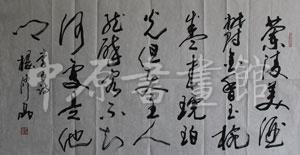 蘭陵美酒
鬱金香玉椀
盛來琥珀
光但使主人
能醉客不知
何處是他
鄉
中原書畫館